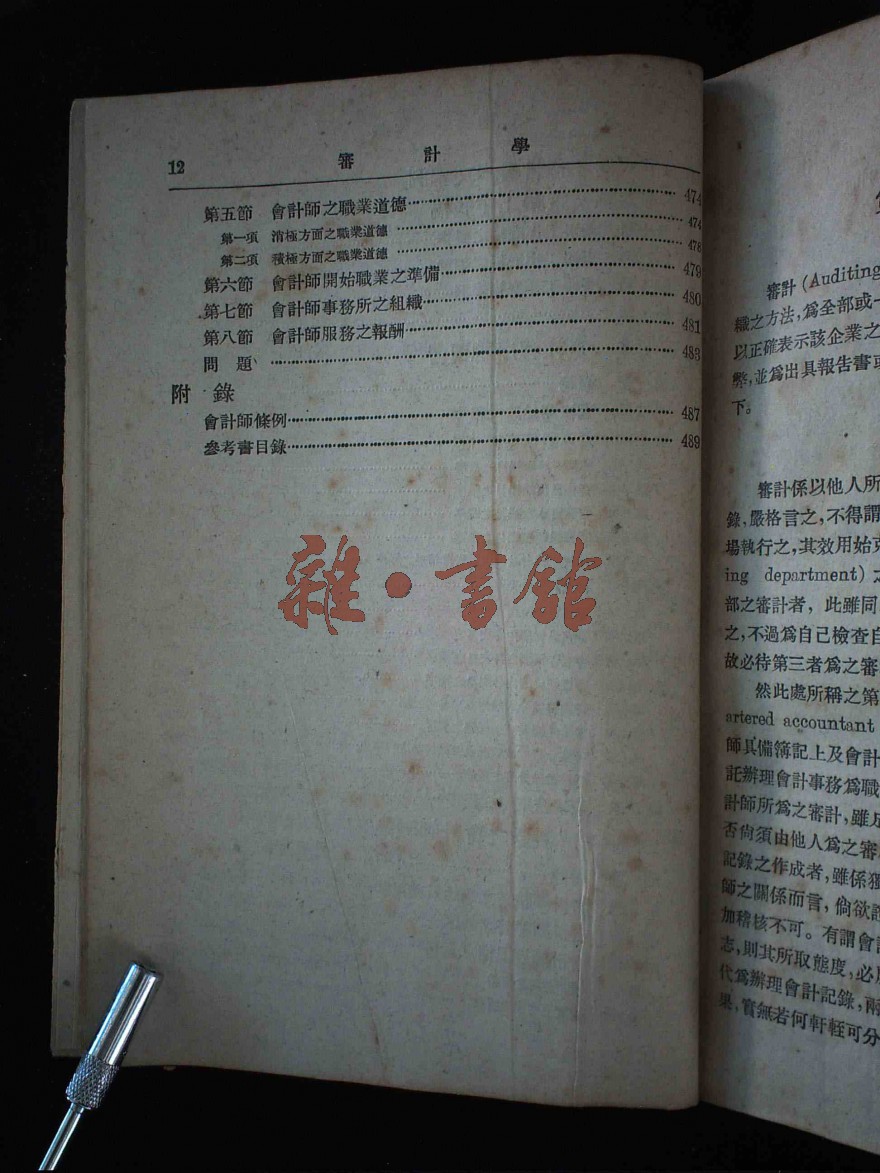 12 審計學
第五節 會計師之職業道德 474
第一項 消極方面之職業道德 474
第二項 積極方面之職業道德 476
第六節 會計師開始職業之準備 479
第七節 會計師事務所之組織 480
第八節 會計師服務之報酬 481
問題 483
附錄
會計師條例 487
參考書目錄 489
雜·書館
審計(Auditing
織之方法,爲全部或一
以正確表示該企業之
弊,並爲出具報告書或
下。
審計係以他人所
錄,嚴格言之,不得謂
場執行之,其效用始克
ing department)之
部之審計者,此雖同
之,不過爲自己檢查自
故必待第三者爲之審
然此處所稱之第
artered accountant
師具備簿記上及會計
託辦理會計事務爲職
計師所爲之審計,雖足
否尙須由他人爲之審
記錄之作成者,雖係獨
師之關係而言,倘欲證
加稽核不可。有謂會計
志,則其所取態度,必
代爲辦理會計記錄,兩
果,實無若何軒輊可分